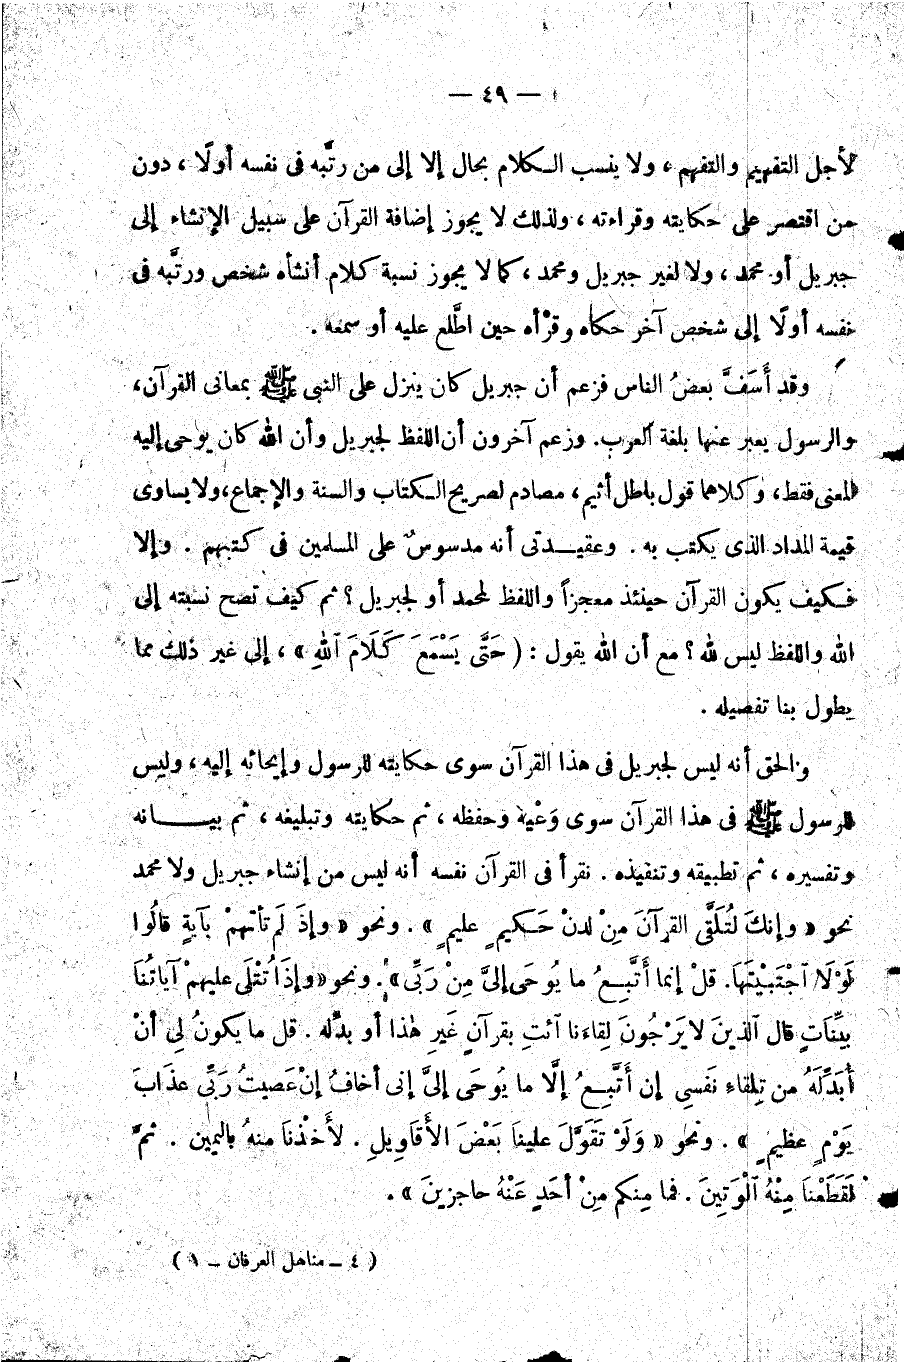 — ٤٩ —
لأجل التفهيم والتفهم ، ولا ينسب الكلام بحال إلا إلى من رتَّبه فى نفسه أولًا ، دون
من اقتصر على حكايته وقراءته ، ولذلك لا يجوز إضافة القرآن على سبيل الإنشاء إلى
جبريل أو محمد ، ولا لغير جبريل ومحمد ، كما لا يجوز نسبة كلام أنشأه شخص ورتَّبه فى
نفسه أولًا إلى شخص آخر حكاه وقرأه حين اطَّلع عليه أو سمعه .
وقد أَسَفَّ بعضُ الناس فزعم أن جبريل كان ينزل على النبى ﷺ بمعانى القرآن،
والرسول يعبر عنها بلغة العرب. وزعم آخرون أن اللفظ لجبريل وأن الله كان يوحى إليه
المعنى فقط، وكلاهما قول باطل أثيم، مصادم لصريح الكتاب والسنة والإجماع، ولا يساوى
قيمة المداد الذى يكتب به . وعقيـدتى أنه مدسوسٌ على المسلمين فى كتبهم . وإلا
فكيف يكون القرآن حينئذ معجزاً واللفظ لمحمد أو لجبريل ؟ ثم كيف تصح نسبته إلى
الله واللفظ ليس لله ؟ مع أن الله يقول : ( حَتَّى يَسْمَعَ كَلَامَ ٱللهِ » ، إلى غير ذلك مما
يطول بنا تفصيله .
والحق أنه ليس لجبريل فى هذا القرآن سوى حكايته للرسول وإيحائه إليه ، وليس
للرسول ﷺ فى هذا القرآن سوى وَعْيه وحفظه ، ثم حكايته وتبليغه ، ثم بيـــانه
وتفسيره ، ثم تطبيقه وتنفيذه . نقرأ فى القرآن نفسه أنه ليس من إنشاء جبريل ولا محمد
نحو « وإنكَ لَتُلَقَّى القرآنَ مِنْ لدنْ حَكيمٍ عليمٍ » . ونحو « وإذَ لَم تأتهمْ بآيةٍ قالُوا
لَوْلَا ٱجْتَبَيْتَهَا. قلْ إنما أَتَّبعُ ما يُوحَى إلىَّ مِنْ رَبِّى». ونحو «وإذَا تُتْلَى عليهمْ آياتُنَا
بيِّنَاتٍ قال ٱلذينَ لا يَرْجُونَ لِقاءَنا ٱئتِ بقرآنٍ غَيرِ هٰذا أو بدِّله . قل ما يكونُ لِى أنْ
أُبَدِّلَهُ من تِلقاءِ نَفسِى إن أَتَّبعُ إلَّا ما يُوحَى إلىَّ إنى أخافُ إنْ عَصيتُ رَبِّى عذَابَ
يَوْمٍ عظيمٍ » . ونحو « وَلَوْ تَقَوَّلَ علينَا بَعْضَ الأَقَاوِيلِ . لأَخذْنَا منهُ باليمين . ثمَّ
لَقَطَعْنَا مِنْهُ ٱلْوَتِينَ . فما مِنكم مِنْ أحَدٍ عَنْهُ حاجزينَ » .
( ٤ ــ مناهل العرفان ــ ١ )